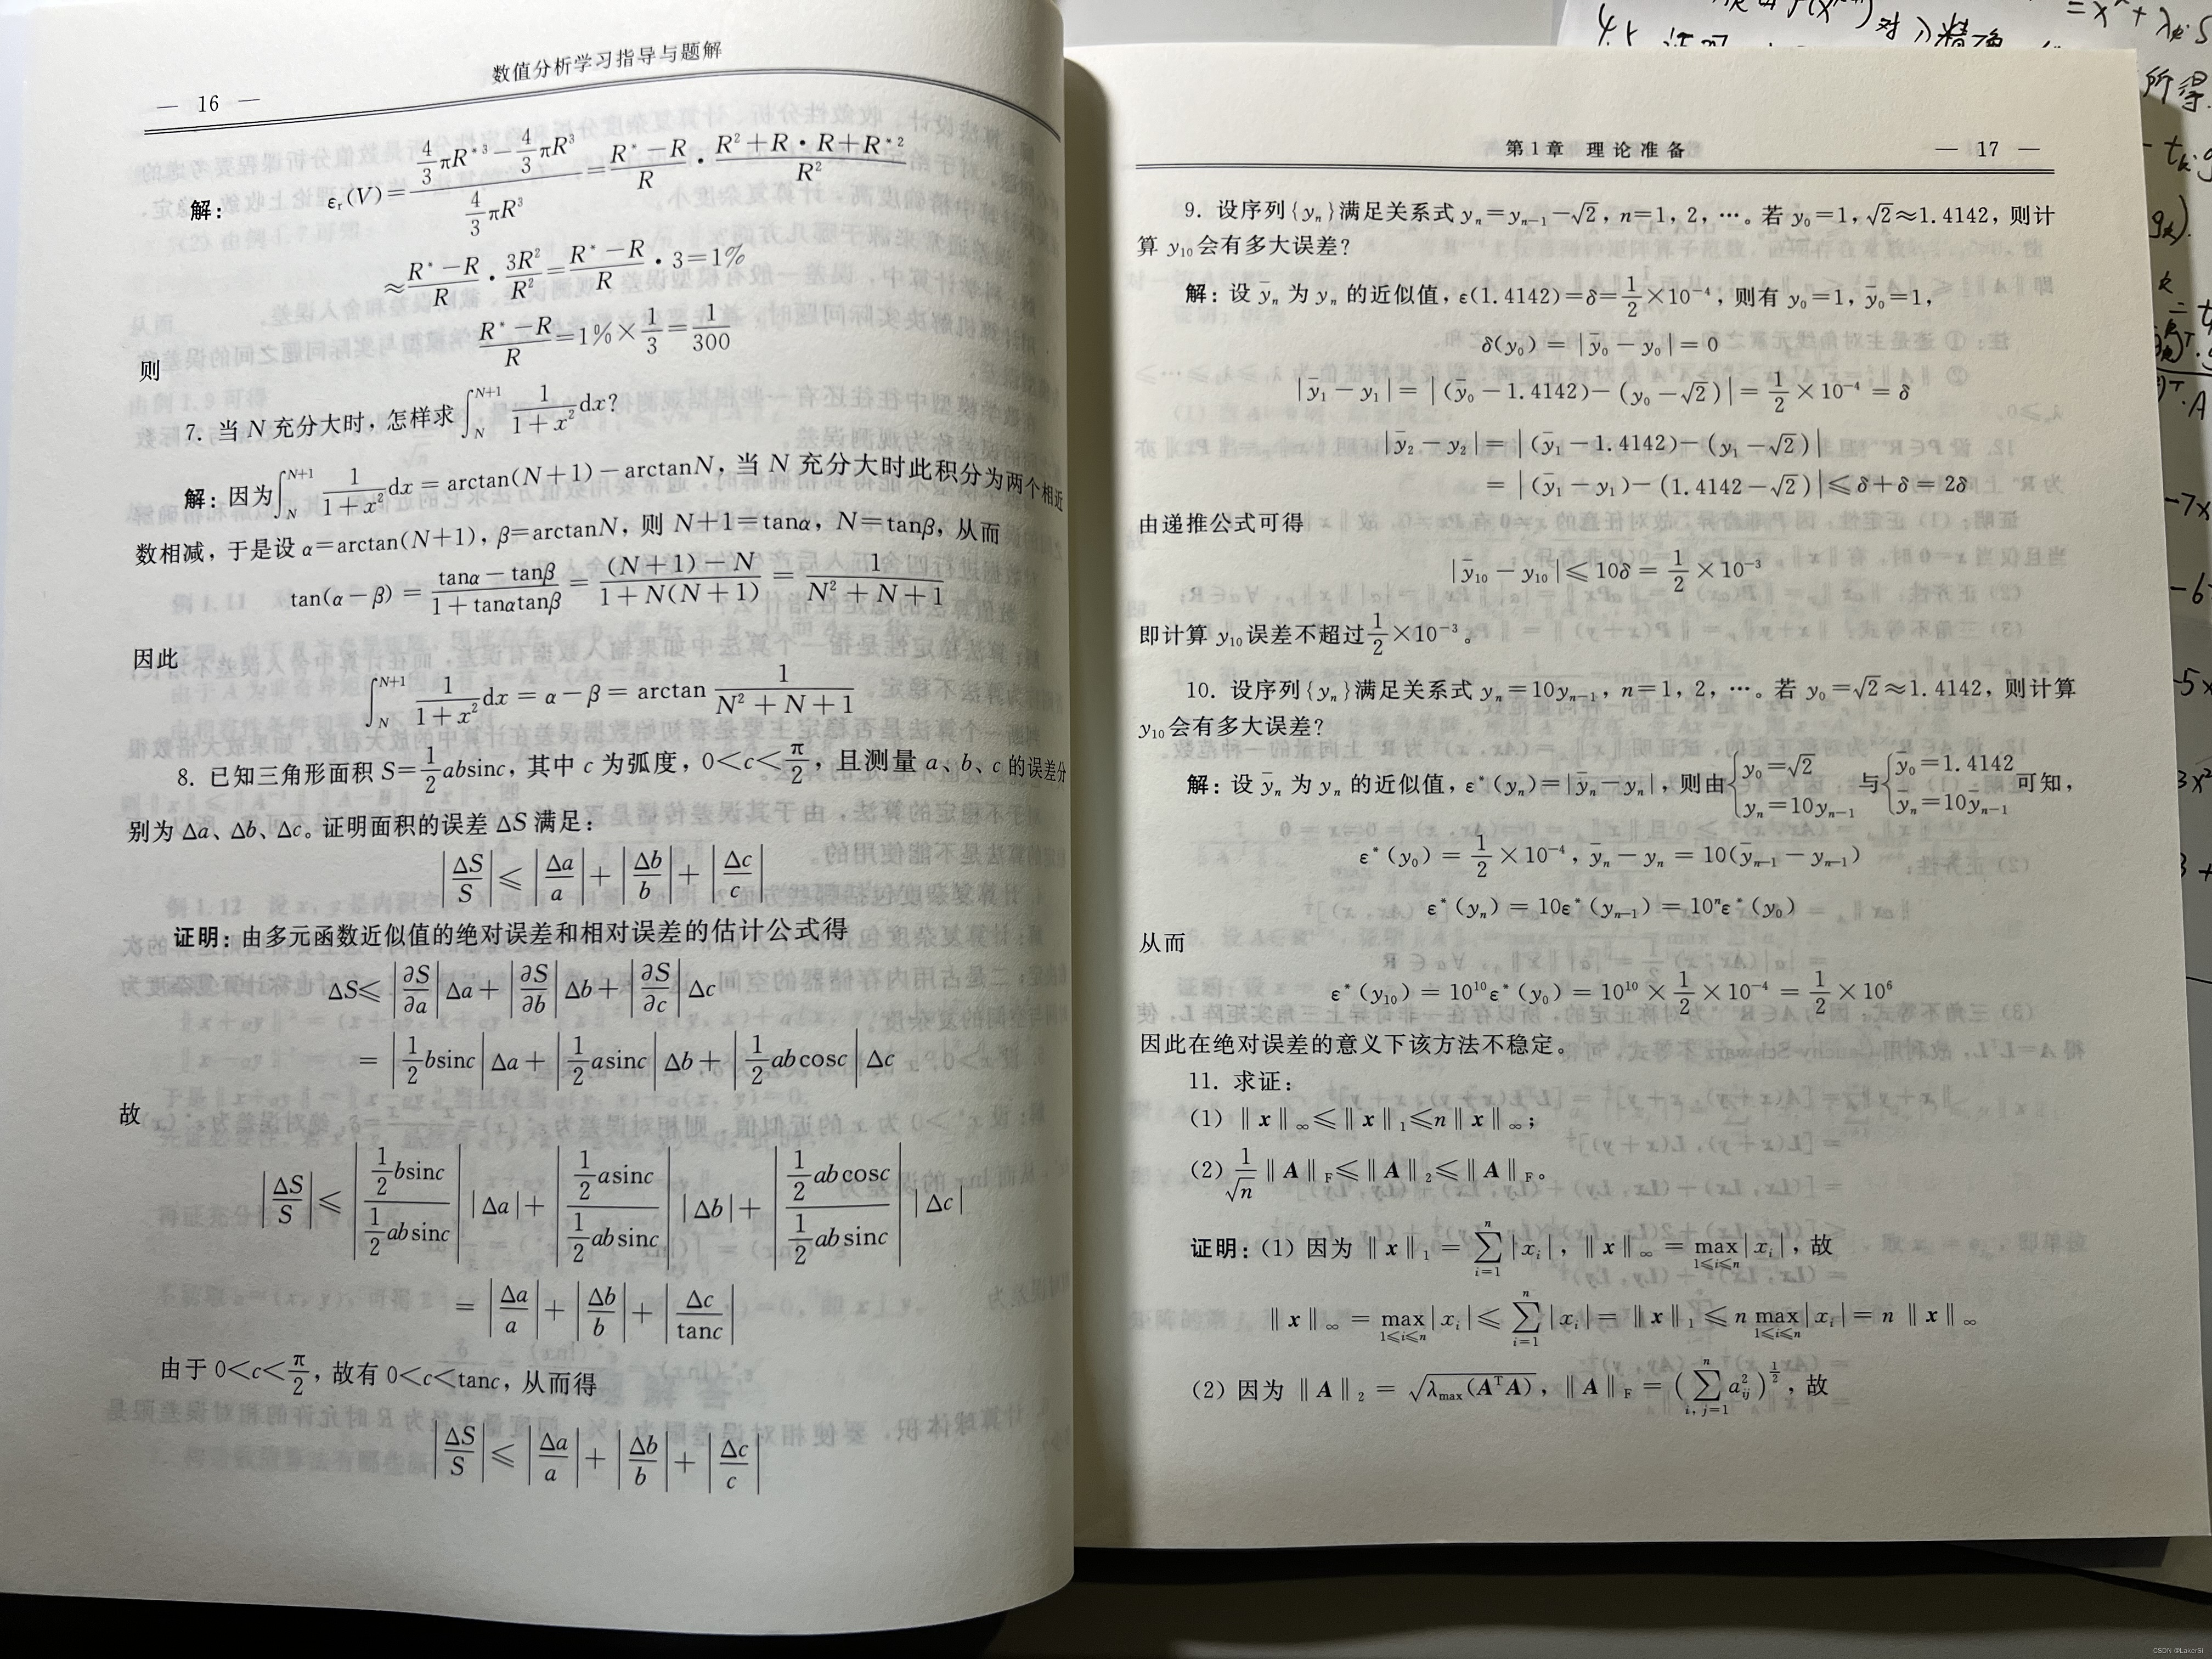 数值分析学习指导与题解
— 16 —
解: εᵣ(V)=(4/3 πR*³−4/3 πR³)/(4/3 πR³)=(R*−R)/R · (R²+R·R+R*²)/R²
≈(R*−R)/R · 3R²/R²=(R*−R)/R · 3=1%
则 (R*−R)/R=1%×1/3=1/300
7. 当 N 充分大时, 怎样求∫_N^{N+1} 1/(1+x²)dx?
解: 因为∫_N^{N+1} 1/(1+x²)dx=arctan(N+1)−arctanN, 当 N 充分大时此积分为两个相近
数相减, 于是设 α=arctan(N+1), β=arctanN, 则 N+1=tanα, N=tanβ, 从而
tan(α−β)=(tanα−tanβ)/(1+tanαtanβ)=((N+1)−N)/(1+N(N+1))=1/(N²+N+1)
因此
∫_N^{N+1} 1/(1+x²)dx=α−β=arctan 1/(N²+N+1)
8. 已知三角形面积 S=1/2 absinc, 其中 c 为弧度, 0<c<π/2, 且测量 a、b、c 的误差分
别为 Δa、Δb、Δc。证明面积的误差 ΔS 满足:
|ΔS/S|≤|Δa/a|+|Δb/b|+|Δc/c|
证明: 由多元函数近似值的绝对误差和相对误差的估计公式得
ΔS≤|∂S/∂a|Δa+|∂S/∂b|Δb+|∂S/∂c|Δc
=|1/2 bsinc|Δa+|1/2 asinc|Δb+|1/2 abcosc|Δc
故
|ΔS/S|≤|(1/2 bsinc)/(1/2 absinc)||Δa|+|(1/2 asinc)/(1/2 absinc)||Δb|+|(1/2 abcosc)/(1/2 absinc)||Δc|
=|Δa/a|+|Δb/b|+|Δc/tanc|
由于 0<c<π/2, 故有 0<c<tanc, 从而得
|ΔS/S|≤|Δa/a|+|Δb/b|+|Δc/c|
第1章 理论准备
— 17 —
9. 设序列{yₙ}满足关系式 yₙ=yₙ₋₁−√2, n=1, 2, …。若 y₀=1, √2≈1.4142, 则计
算 y₁₀会有多大误差?
解: 设 ȳₙ 为 yₙ 的近似值, ε(1.4142)=δ=1/2×10⁻⁴, 则有 y₀=1, ȳ₀=1,
δ(y₀)=|ȳ₀−y₀|=0
|ȳ₁−y₁|=|(ȳ₀−1.4142)−(y₀−√2)|=1/2×10⁻⁴=δ
|ȳ₂−y₂|=|(ȳ₁−1.4142)−(y₁−√2)|
=|(ȳ₁−y₁)−(1.4142−√2)|≤δ+δ=2δ
由递推公式可得
|ȳ₁₀−y₁₀|≤10δ=1/2×10⁻³
即计算 y₁₀误差不超过1/2×10⁻³。
10. 设序列{yₙ}满足关系式 yₙ=10yₙ₋₁, n=1, 2, …。若 y₀=√2≈1.4142, 则计算
y₁₀会有多大误差?
解: 设 ȳₙ 为 yₙ 的近似值, ε*(yₙ)=|ȳₙ−yₙ|, 则由{y₀=√2 yₙ=10yₙ₋₁ 与{ȳ₀=1.4142 ȳₙ=10ȳₙ₋₁ 可知,
ε*(y₀)=1/2×10⁻⁴, ȳₙ−yₙ=10(ȳₙ₋₁−yₙ₋₁)
ε*(yₙ)=10ε*(yₙ₋₁)=10ⁿε*(y₀)
从而
ε*(y₁₀)=10¹⁰ε*(y₀)=10¹⁰×1/2×10⁻⁴=1/2×10⁶
因此在绝对误差的意义下该方法不稳定。
11. 求证:
(1) ‖x‖∞≤‖x‖₁≤n‖x‖∞;
(2) 1/√n ‖A‖_F≤‖A‖₂≤‖A‖_F。
证明: (1) 因为 ‖x‖₁=∑_{i=1}^{n}|xᵢ|, ‖x‖∞=max_{1≤i≤n}|xᵢ|, 故
‖x‖∞=max_{1≤i≤n}|xᵢ|≤∑_{i=1}^{n}|xᵢ|=‖x‖₁≤n max_{1≤i≤n}|xᵢ|=n‖x‖∞
(2) 因为 ‖A‖₂=√(λ_max(AᵀA)), ‖A‖_F=(∑_{i,j=1}^{n}a²ᵢⱼ)^{1/2}, 故
所得
CSDN @LakerSi